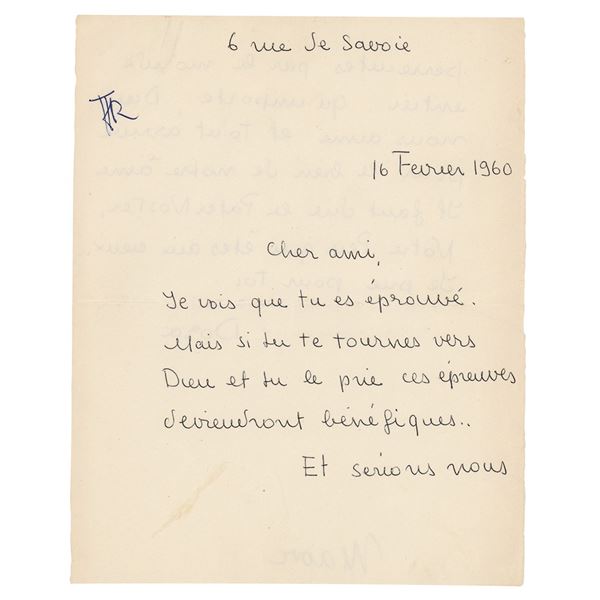 6 rue de Savoie
16 Fevrier 1960
Cher ami,
Je vois que tu es éprouvé.
Mais si tu te tournes vers
Dieu et tu le prie ces épreuves
deviendront bénéfiques..
Et serions nous